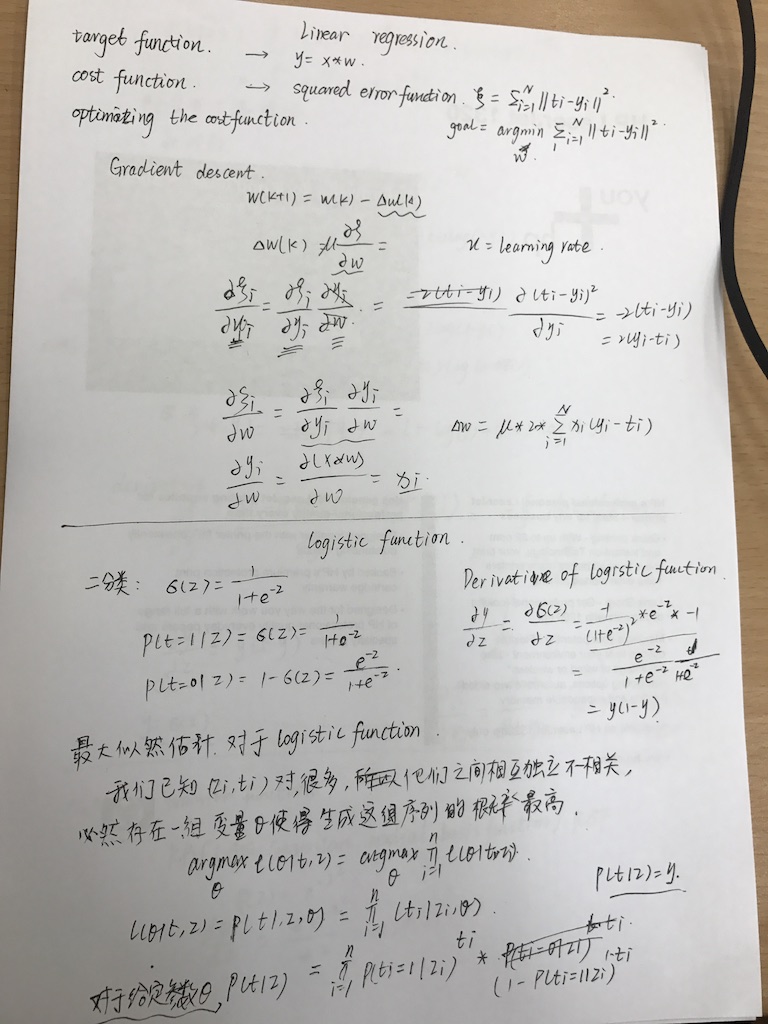 Linear regression.
target function. → y = x*w.
cost function. → squared error function. ξ = Σ_{i=1}^{N} ||ti-yi||².
optimizing the costfunction. goal = argmin_w Σ_{i=1}^{N} ||ti-yi||².
Gradient descent.
w(k+1) = w(k) - Δw(k)
Δw(k) = μ ∂ξ/∂w = u = learning rate.
∂ξi/∂yi = ∂ξi/∂yi ∂yi/∂w = ∂(ti-yi)²/∂yi = -2(ti-yi)
= 2(yi-ti)
∂ξi/∂w = ∂ξi/∂yi ∂yi/∂w = Δw = μ*2* Σ_{i=1}^{N} xi(yi-ti)
∂yi/∂w = ∂(x*w)/∂w = xi.
logistic function.
二分类: б(z) = 1/(1+e^{-z})
p(t=1|z) = б(z) = 1/(1+e^{-z})
p(t=0|z) = 1-б(z) = e^{-z}/(1+e^{-z}).
Derivative of logistic function.
∂y/∂z = ∂б(z)/∂z = 1/(1+e^{-z})² * e^{-z} * -1
= e^{-z}/(1+e^{-z}) 1/(1+e^{-z})
= y(1-y)
最大似然估计. 对于logistic function.
我们已知 (zi,ti)对,很多, 他们之间相互独立不相关,
必然存在一组变量θ使得生成这组序列的概率最高.
argmax_θ ℓ(θ|t,z) = argmax_θ Π_{i=1}^{n} ℓ(θ|ti,zi).
p(t|z) = y.
L(θ|t,z) = p(t|z,θ) = Π_{i=1}^{n} (ti|zi,θ).
对于给定参数θ, p(t|z) = Π_{i=1}^{n} p(ti=1|zi)^{ti} * (1-p(ti=1|zi))^{1-ti}